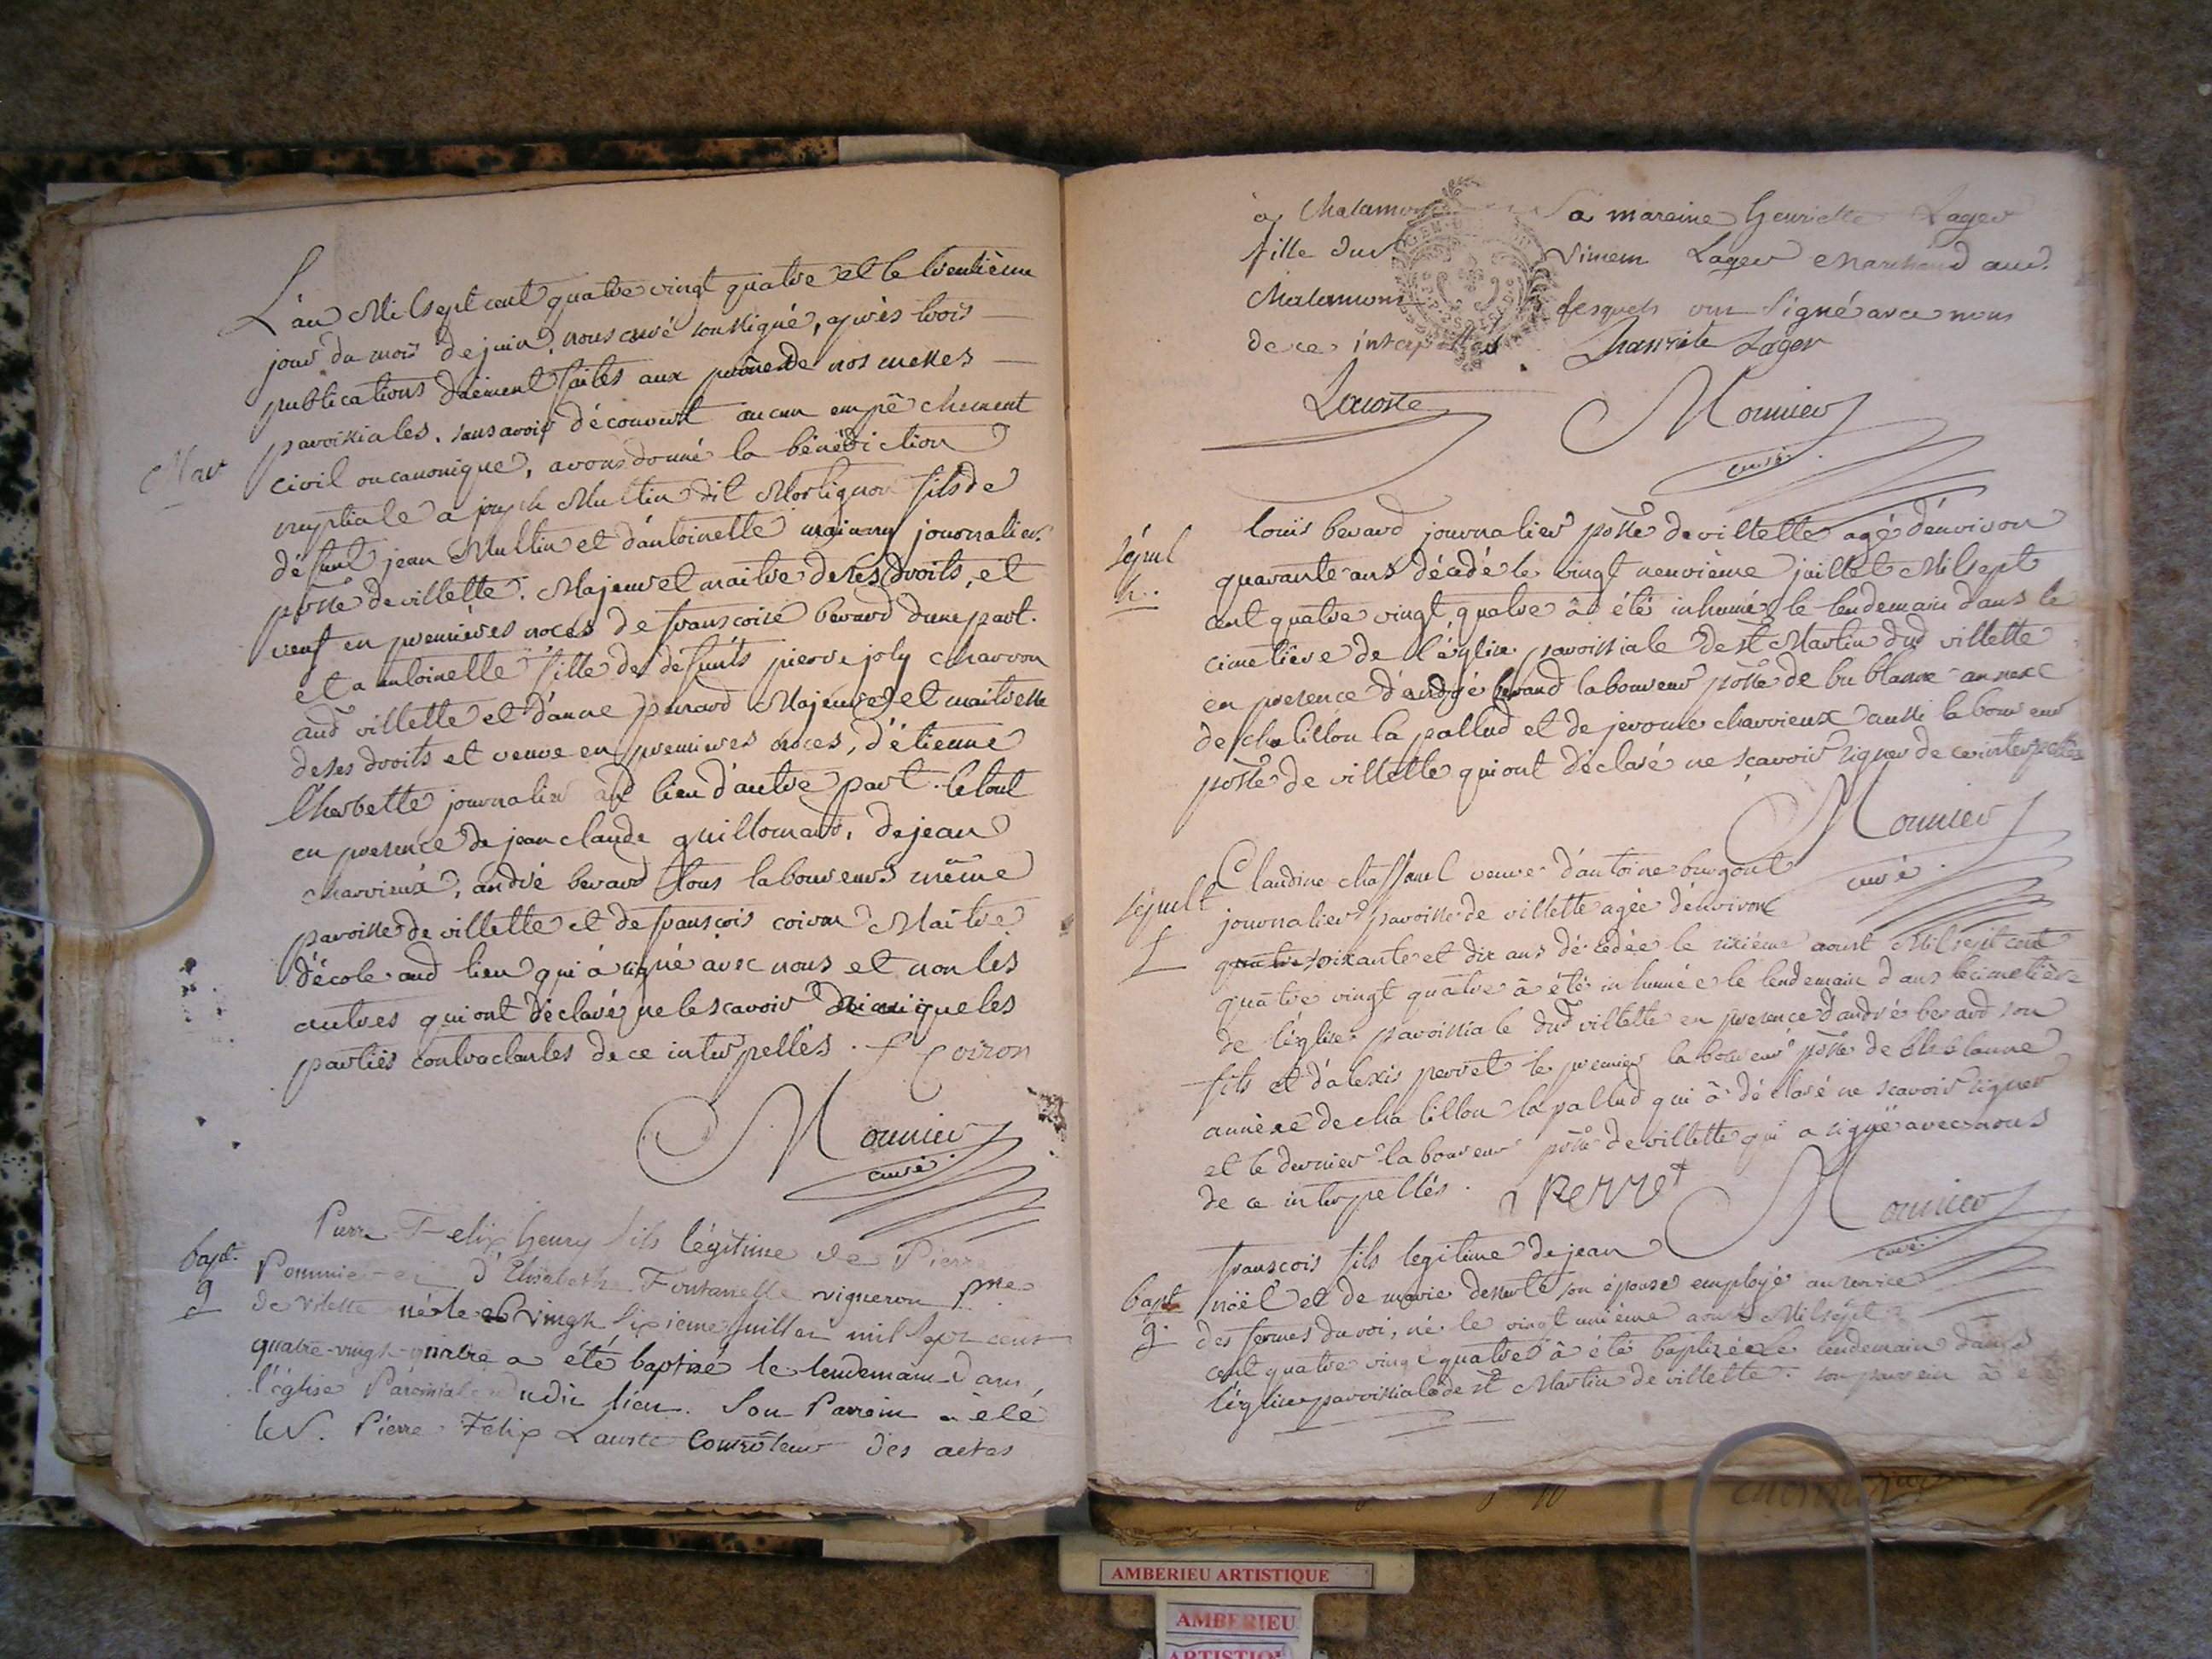 L'an Mil sept cent quatre vingt quatre et le trentième
jour du mois de juin, nous curé soussigné, après trois
publications dûement faites aux prônes de nos messes
paroissiales, sans avoir découvert aucun empêchement
Mar
civil ou canonique, avons donné la bénédiction
nuptiale a joseph Multin dit Morlignon fils de
défunt jean Multin et d'antoinette journalier
poisse de villette. Majeur et maitre de ses droits, et
veuf en premières noces de françoise berard d'une part.
et a antoinette fille des defunts pierre joly charron
aud villette et d'anne Majeure et maitresse
de ses droits et veuve en premieres noces, d'étienne
l'herbette journalier aud lieu d'autre part. le tout
en presence de jean claude guillomard, de jean
charvieux, andré berard tous laboureurs même
paroisse de villette et de françois coiron Maître
d'école aud lieu qui à signé avec nous et non les
autres qui ont déclaré ne le scavoir ainsi que les
parties contractantes de ce interpellés. f Coiron
Mounier
curé.
Pierre Felix henry fils légitime de Pierre
bapt.
Pommier et d'Elisabeth Fontanelle vigneron psse
g
de vilette né le vingt sixieme juillet mil sept cent
quatre-vingt-quatre a été baptisé le lendemain dans
l'église Paroissiale dudit lieu. Son Parrain a été
le S. Pierre Felix Lacoste Controleur des actes
à Chalamont Sa mareine henriette Lager
fille du Sr Vincent Lager Marchand aud.
Chalamont lesquels ont Signé avec nous
de ce interpellés. hanriete Lager
Lacoste Mounier
curé.
louis berard journalier poisse de villette agé d'environ
sépul
quarante ans décédé le vingt neuvième juillet Mil sept
h.
cent quatre vingt, quatre à été inhumé le lendemain dans le
cimetière de l'église paroissiale de st Martin dud villette
en presence d'andré berard laboureur poisse de bublanne annexe
de chatillon la pallud et de jerome charvieux aussi laboureur
poisse de villette qui ont déclaré ne sçavoir signer de ce interpellés
Mounier
curé.
Claudine chassanel veuve d'antoine burgout
sépult
journalier paroisse de villette agée d'environ
f
soixante et dix ans décédée le sixième aoust Mil sept cent
quatre vingt quatre à été inhumée le lendemain dans le cimetière
de l'église paroissiale dud villette en presence d'andré berard son
fils et d'alexis perret le premier laboureur poisse de bublanne
annèxe de chatillon la pallud qui à déclaré ne scavoir signer
et le dernier laboureur poisse de villette qui a signé avec nous
de ce interpellés. a Perret Mounier
curé.
françois fils legitime de jean
bapt
nöel et de marie desserte son épouse employé au service
g.
des fermes du roi, né le vingt unième aoust Mil sept
cent quatre vingt quatre à été baptizé le lendemain dans
l'église paroissiale de st Martin de villette. son parrein à été
AMBERIEU ARTISTIQUE
AMBERIEU
ARTISTIQUE